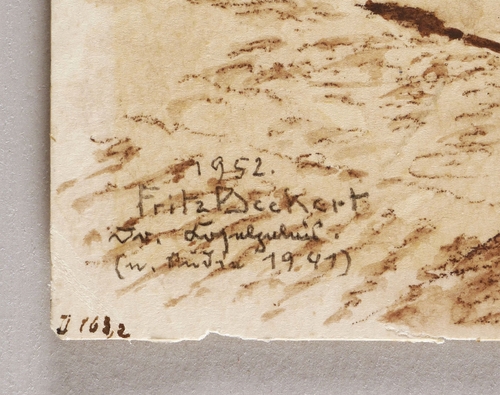 1952.
Fritz Beckert
Dr.
(n. Studie 1941)
D 163,2